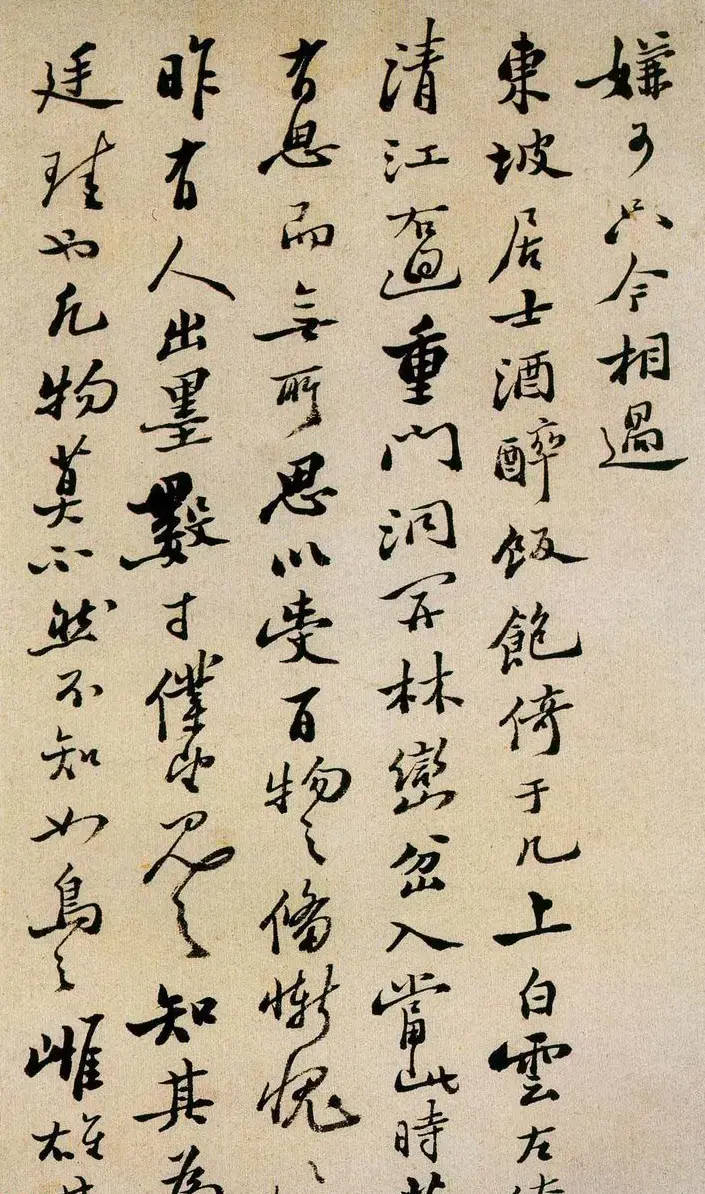 嫌可只今相過
東坡居士酒醉飯飽倚于几上白雲左
清江右迴重門洞開林巒岔入當此時若
有思而無所思以受百物之備慚愧
昨有人出墨數寸僕望見之知其為
廷珪也凡物莫不然不知如烏之雌雄其